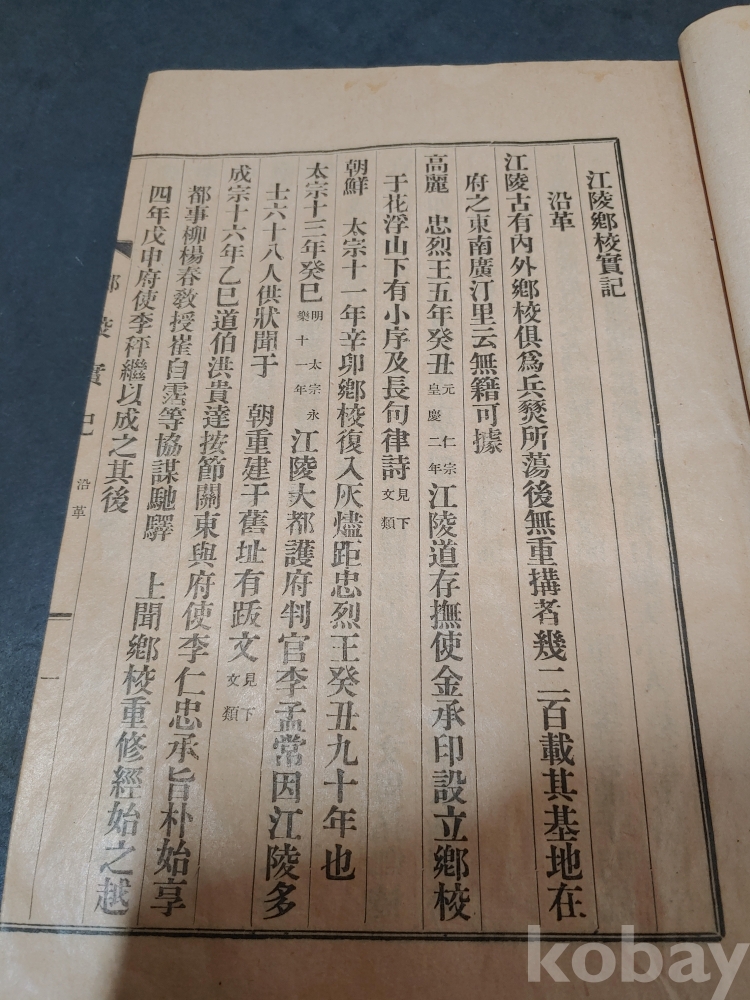 江陵鄕校實記
沿革
江陵古有內外鄕校俱爲兵燹所蕩後無重搆者幾二百載其基地在
府之東南廣汀里云無籍可據
高麗 忠烈王五年癸丑元仁宗皇慶二年江陵道存撫使金承印設立鄕校
于花浮山下有小序及長句律詩見下文類
朝鮮 太宗十一年辛卯鄕校復入灰燼距忠烈王癸丑九十年也
太宗十三年癸巳明太宗永樂十一年江陵大都護府判官李孟常因江陵多
士六十八人供狀聞于 朝重建于舊址有跋文見下文類
成宗十六年乙巳道伯洪貴達按節關東與府使李仁忠承旨朴始享
都事柳楊春敎授崔自霑等協謀馳驛 上聞鄕校重修經始之越
四年戊申府使李秤繼以成之其後
鄕校實記 沿革 一
kobay